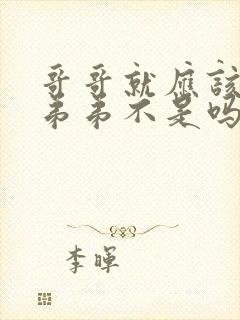 哥哥就应該
弟弟不是吗
李暉